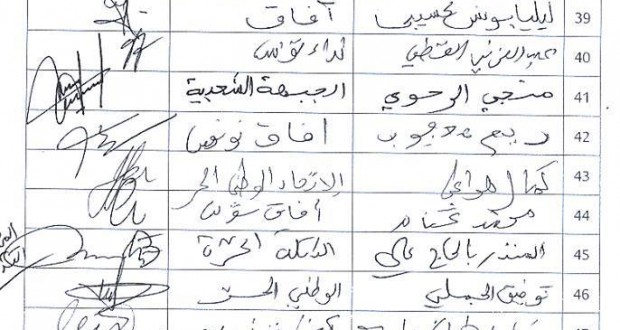 39 ليليا يونس كسيبي آفاق
40 عبد العزيز القطي نداء تونس
41 منجي الرحوي الجبهة الشعبية
42 ريم محجوب افاق تونس
43 كمال هواعي الإتحاد الوطني الحر
44 محمد غنام أفاق تونس
45 المنذر بالحاج علي الكتلة الحرة
46 توفيق الجملي الوطني الحر